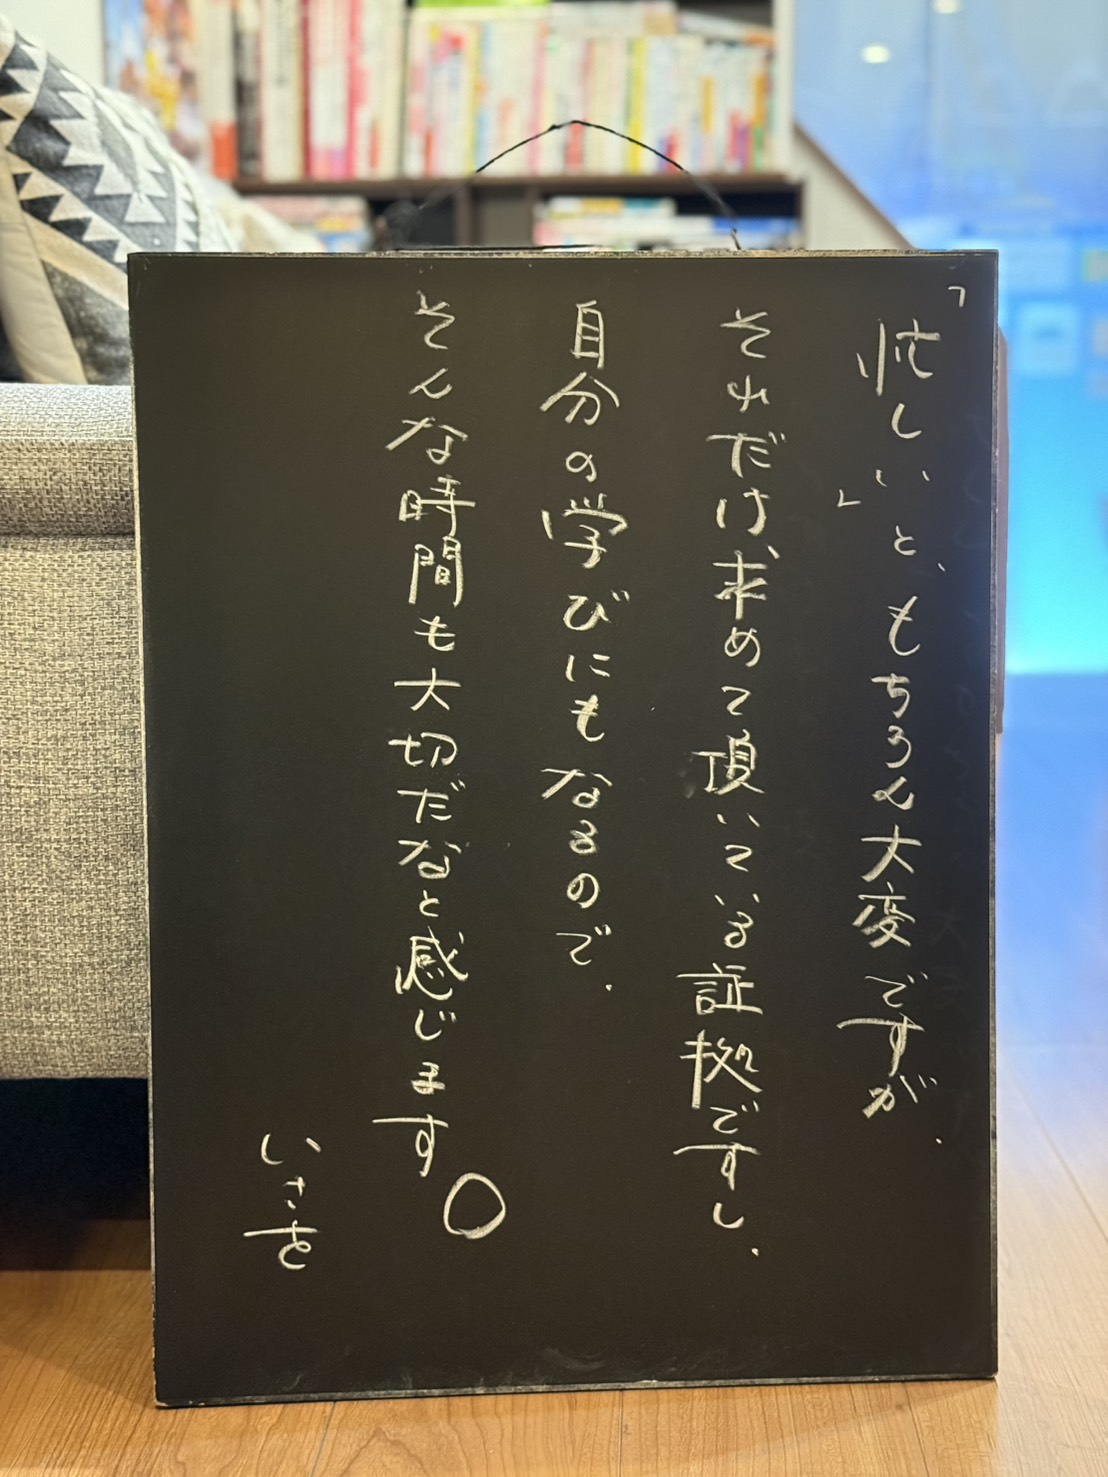 「忙しい」と、もちろん大変ですが、
それだけ、求めて頂いている証拠ですし、
自分の学びにもなるので、
そんな時間も大切だなと感じます。
いさを